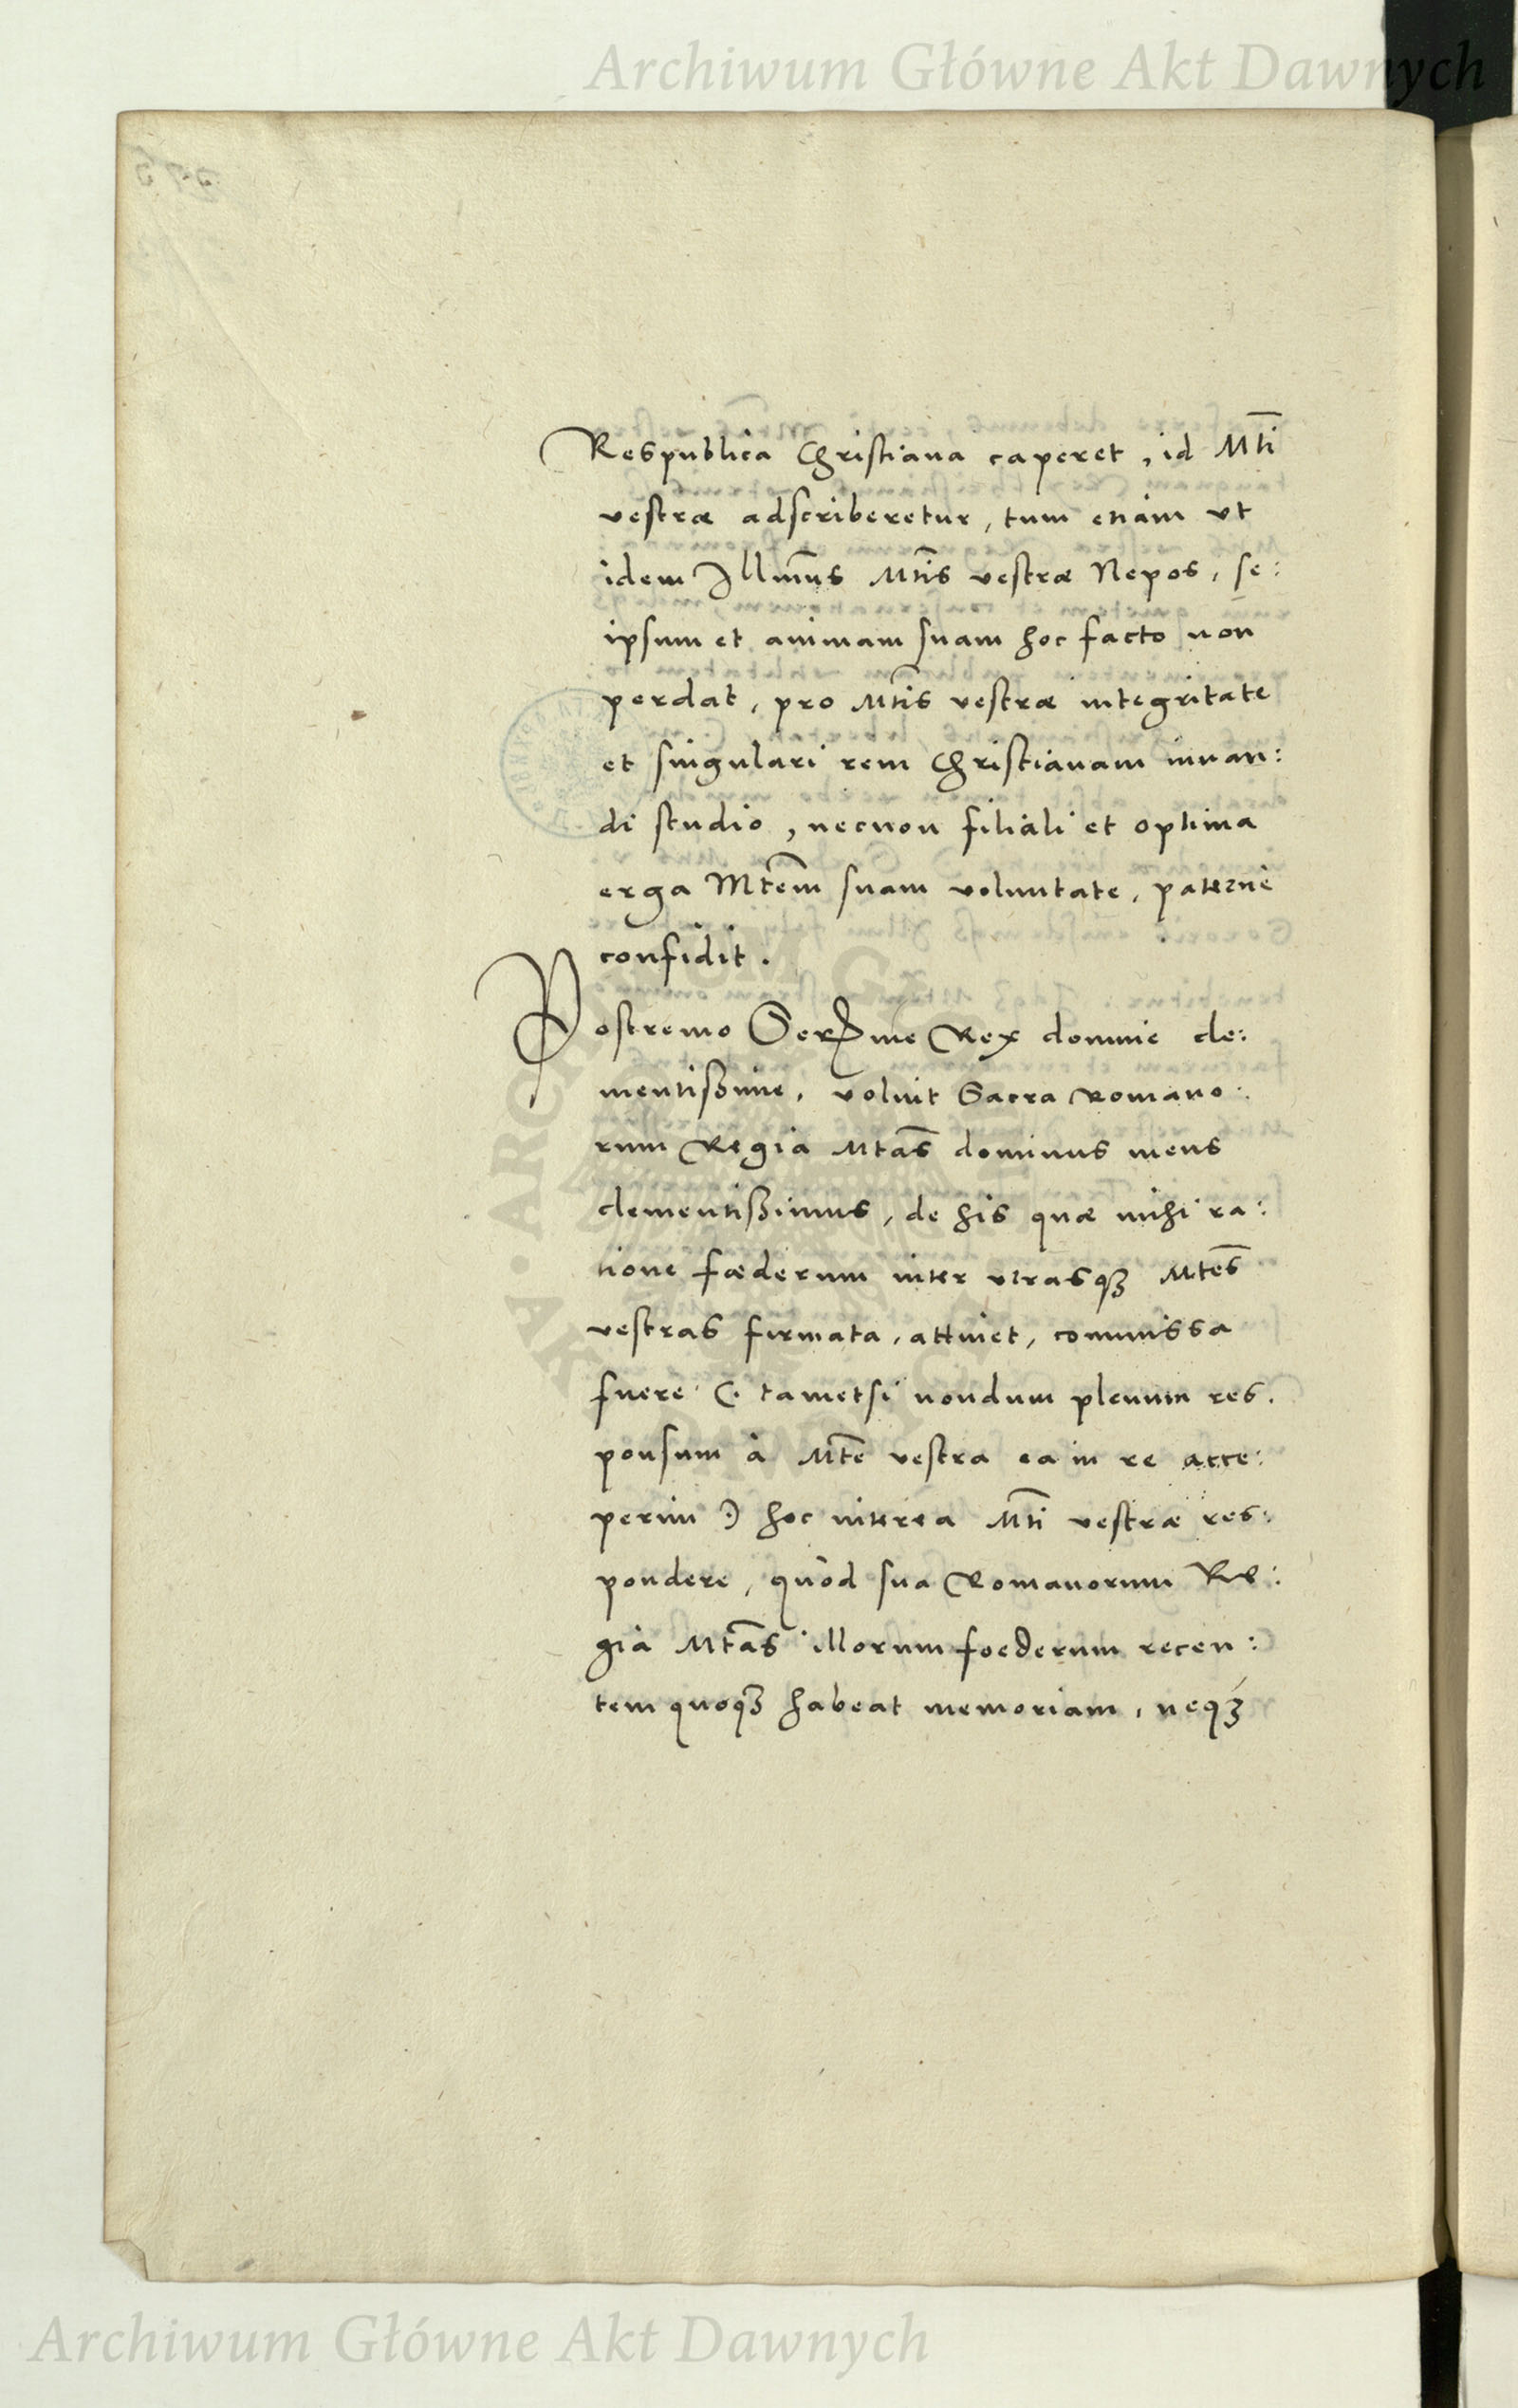 Archiwum Główne Akt Dawnych
Respublica Christiana caperet, id Mti
vestræ adscriberetur, tum etiam vt
idem Illmus Mtis vestræ Nepos, se:
ipsum et animam suam hoc facto non
perdat, pro Mtis vestræ integritate
et singulari rem Christianam iuuan:
di studio, necnon filiali et optima
erga Mtem suam voluntate, paternè
confidit.
Postremo Serme Rex domine cle:
mentißime, voluit Sacra Romano:
rum Regia Mtas dominus meus
clementißimus, de his quæ mihi ra:
tione fœderum inter vtrasqꝫ Mtes
vestras firmata, attinet, commissa
fuere (. tametsi nondum plenum res.
ponsum à Mte vestra ea in re acce:
perim .) hoc interea Mti vestræ res:
pondere, quòd sua Romanorum Re:
gia Mtas illorum foederum recen:
tem quoqꝫ habeat memoriam, neqꝫ
Archiwum Główne Akt Dawnych